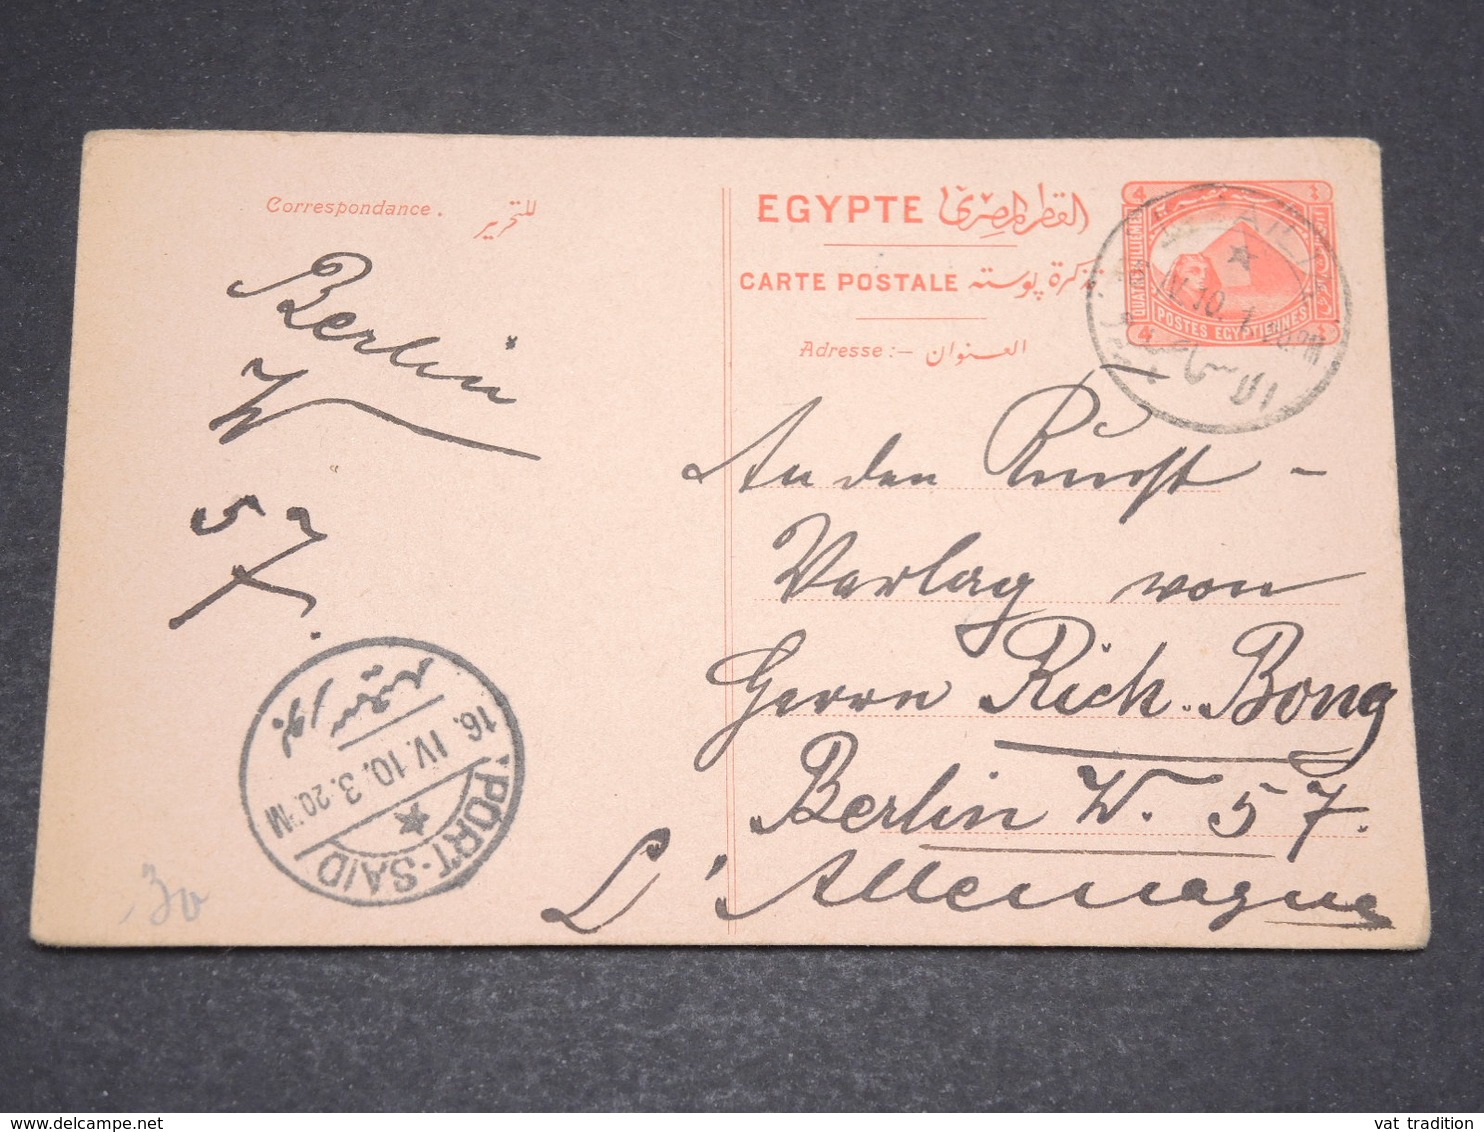 Correspondance . للتحرير
Berlin
W
57.
بور سعيد
16. IV. 10. 3.20.PM
PORT-SAID
30
EGYPTE القطر المصرى
CARTE POSTALE تذكرة پوسته
Adresse :— العنوان
4
QUATRE MILLIEMES
POSTES EGYPTIENNES
4
IV.10. 1
An den Kunst -
Verlag von
Herrn Rich. Bong
Berlin W. 57.
L'Allemagne
vat tradition
delcampe.net